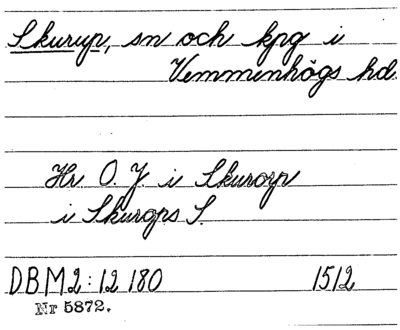 Skurup, sn och kpg i
Vemmenhögs hd.
Hr O. J. i Skurorp
i Skurops S.
DBM2:12 180 1512
Nr 5872.